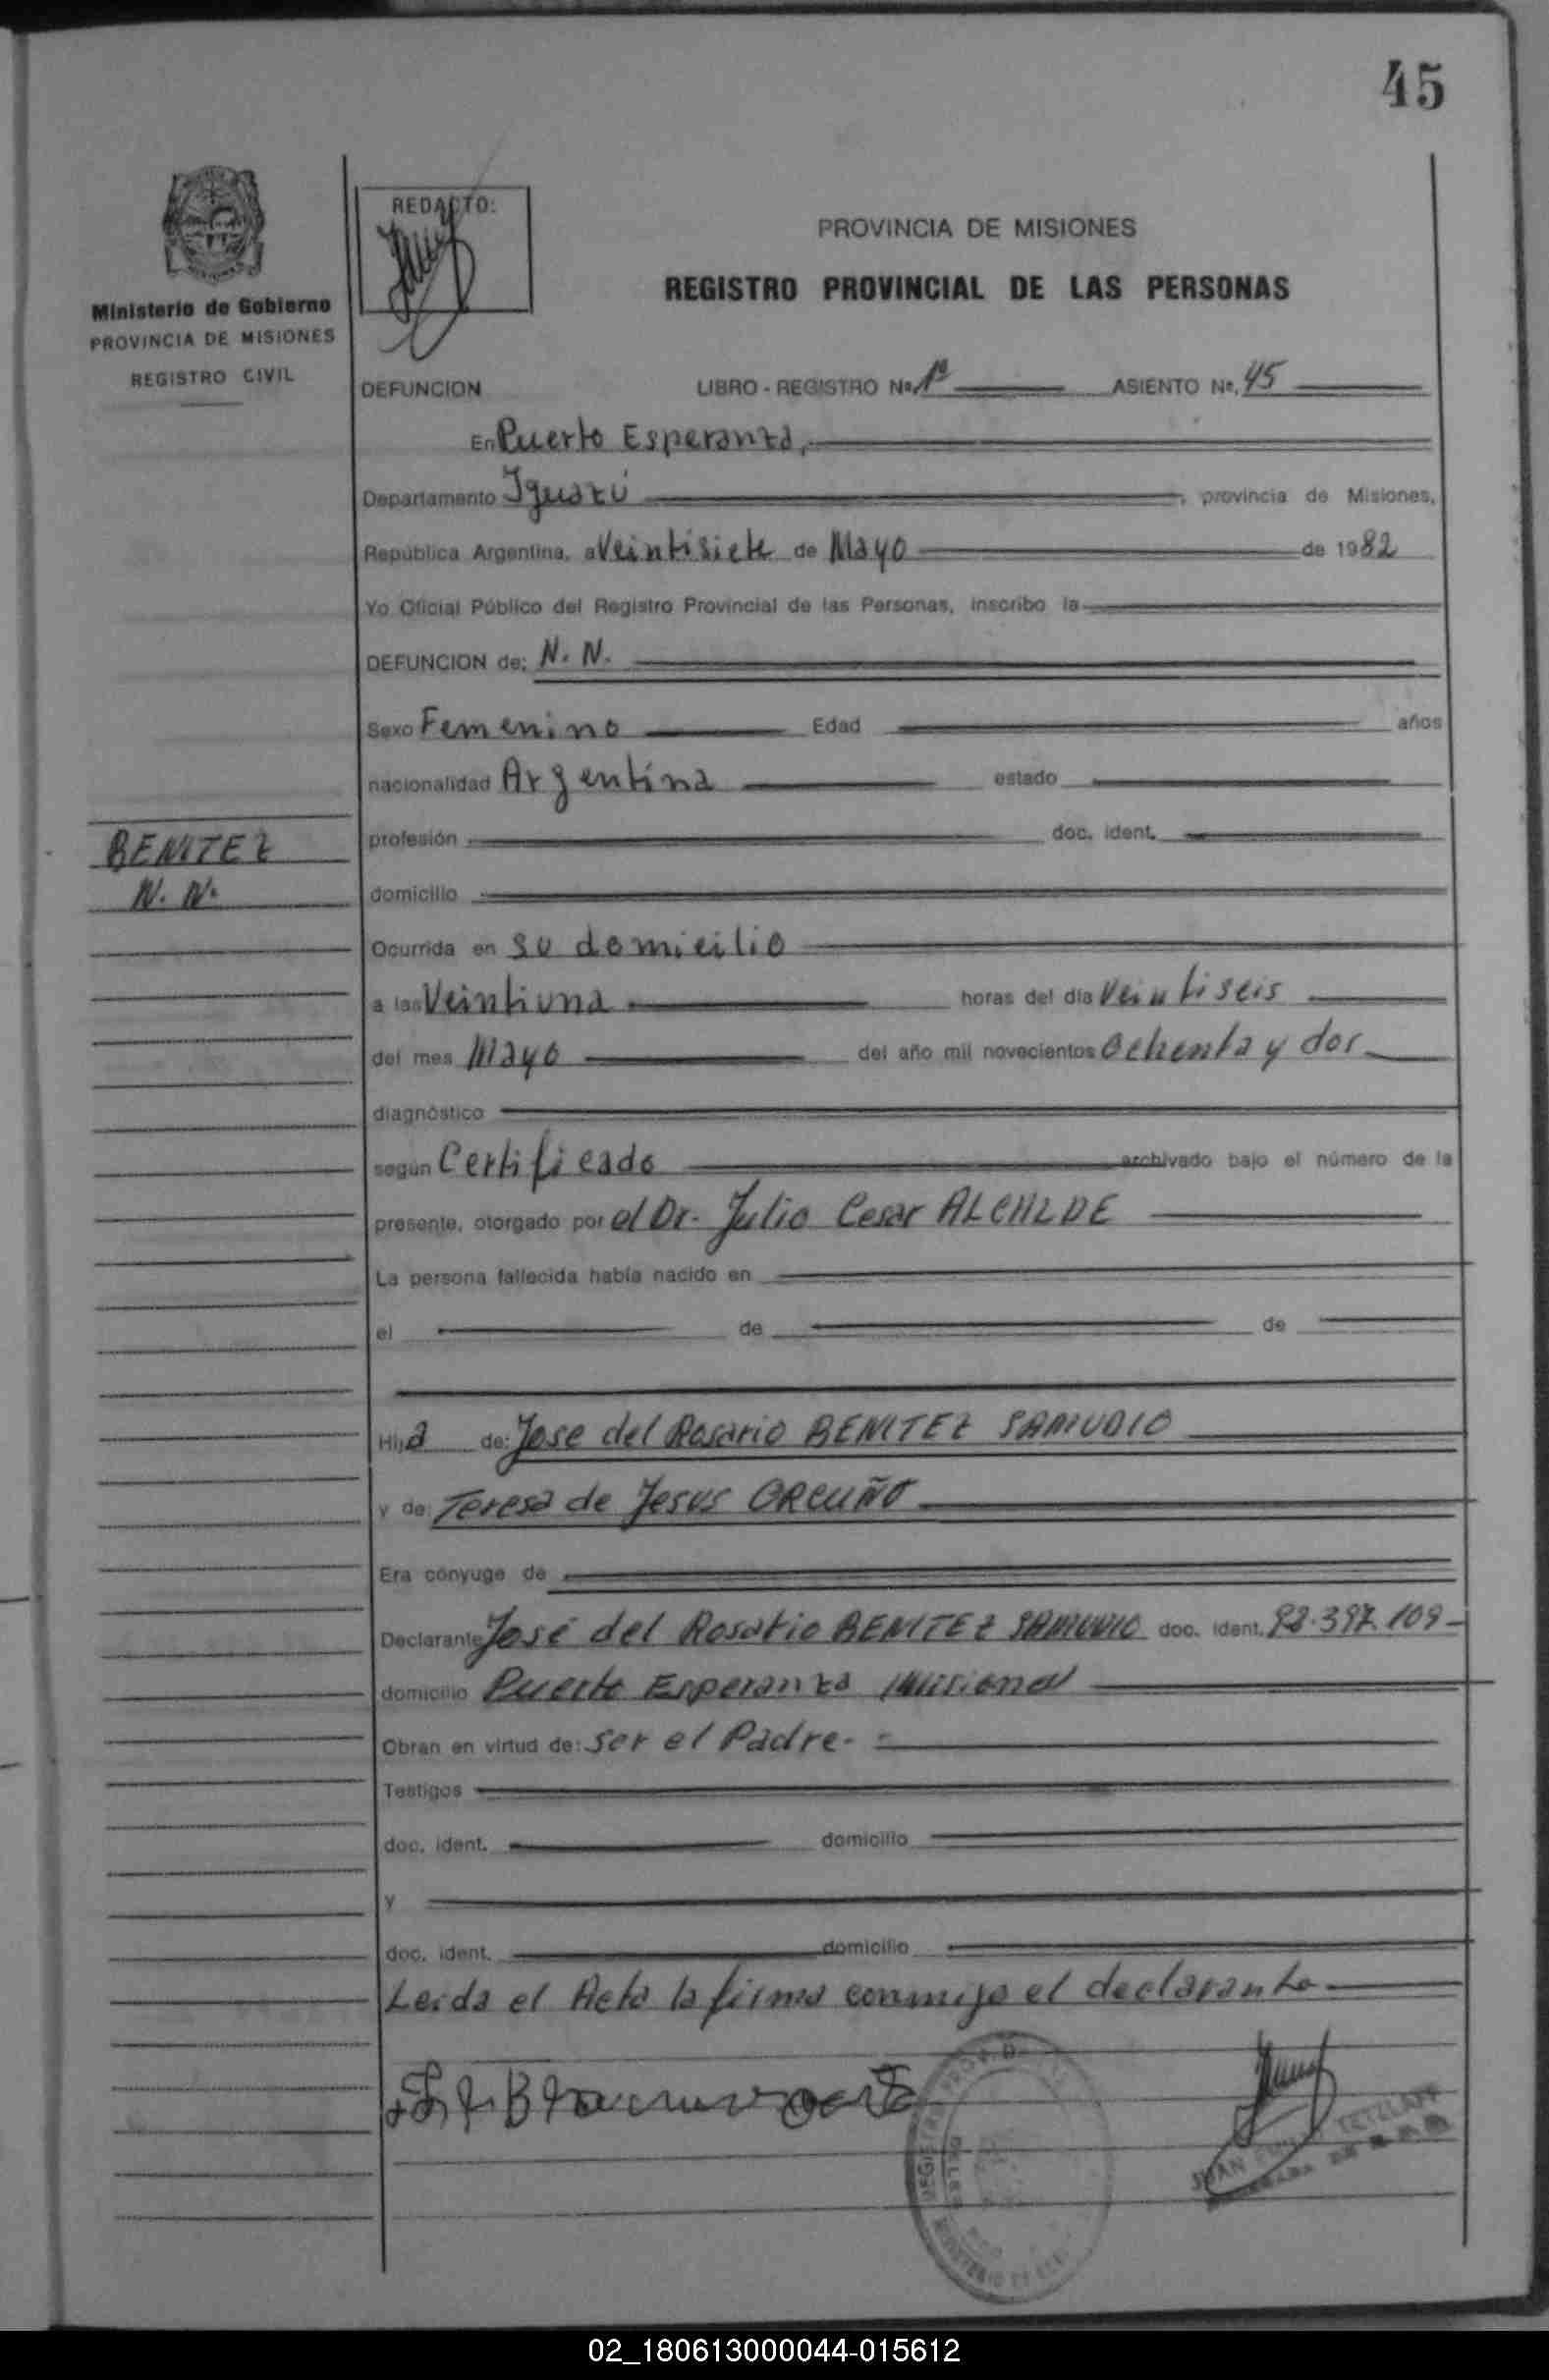 45
REDACTO:
PROVINCIA DE MISIONES
REGISTRO PROVINCIAL DE LAS PERSONAS
Ministerio de Gobierno
PROVINCIA DE MISIONES
REGISTRO CIVIL
DEFUNCION LIBRO - REGISTRO Nº 1º ASIENTO Nº. 45
En Puerto Esperanza,
Departamento Iguazú, provincia de Misiones,
República Argentina, a Veintisiete de Mayo de 1982
Yo Oficial Público del Registro Provincial de las Personas, inscribo la
DEFUNCION de: N. N.
Sexo Femenino Edad años
nacionalidad Argentina estado
BENITEZ
N. N.
profesión doc. ident.
domicilio
Ocurrida en su domicilio
a las Veintiuna horas del día Veintiseis
del mes Mayo del año mil novecientos Ochenta y dos
diagnóstico
según Certificado archivado bajo el número de la
presente, otorgado por el Dr. Julio Cesar ALCALDE
La persona fallecida había nacido en
el de de
Hija de: Jose del Rosario BENITEZ SAMUDIO
y de: Teresa de Jesus ORCUÑO
Era cónyuge de
Declarante José del Rosario BENITEZ SAMUDIO doc. ident. 92.397.109-
domicilio Puerto Esperanza Misiones
Obran en virtud de: Ser el Padre.-
Testigos
doc. ident. domicilio
y
doc. ident. domicilio
Leida el Acta la firma conmigo el declarante
JUAN TETZLAFF
02_180613000044-015612